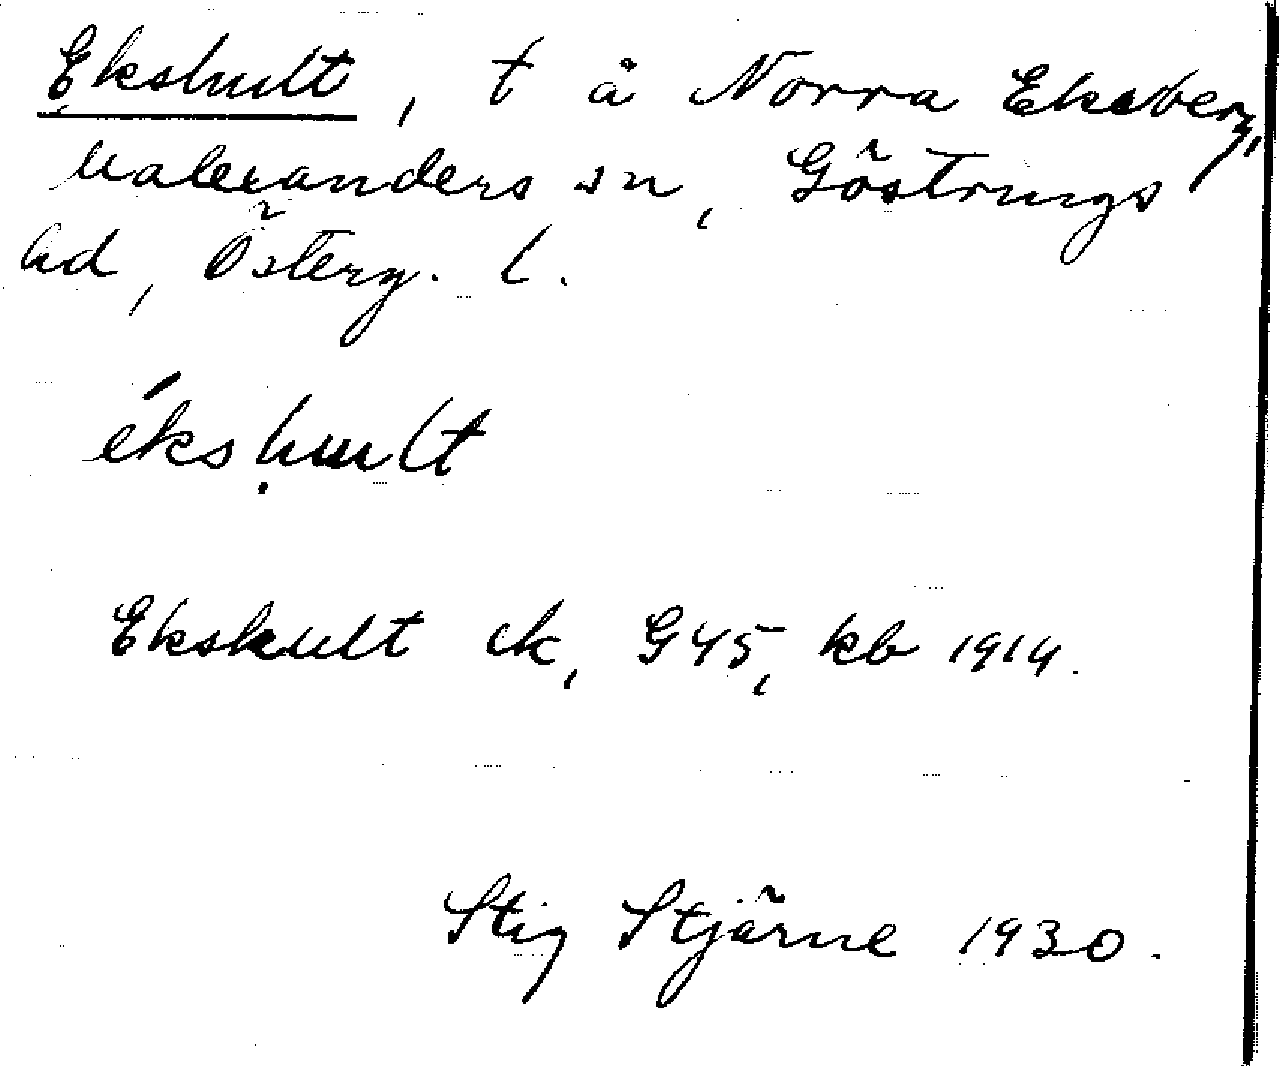 Ekshult, t å Norra Eksberg,
Valexanders sn, Göstrings
hd, Österg. l.
ékshult
Ekshult ck, G 45, kb 1914.
Stig Stjärne 1930.